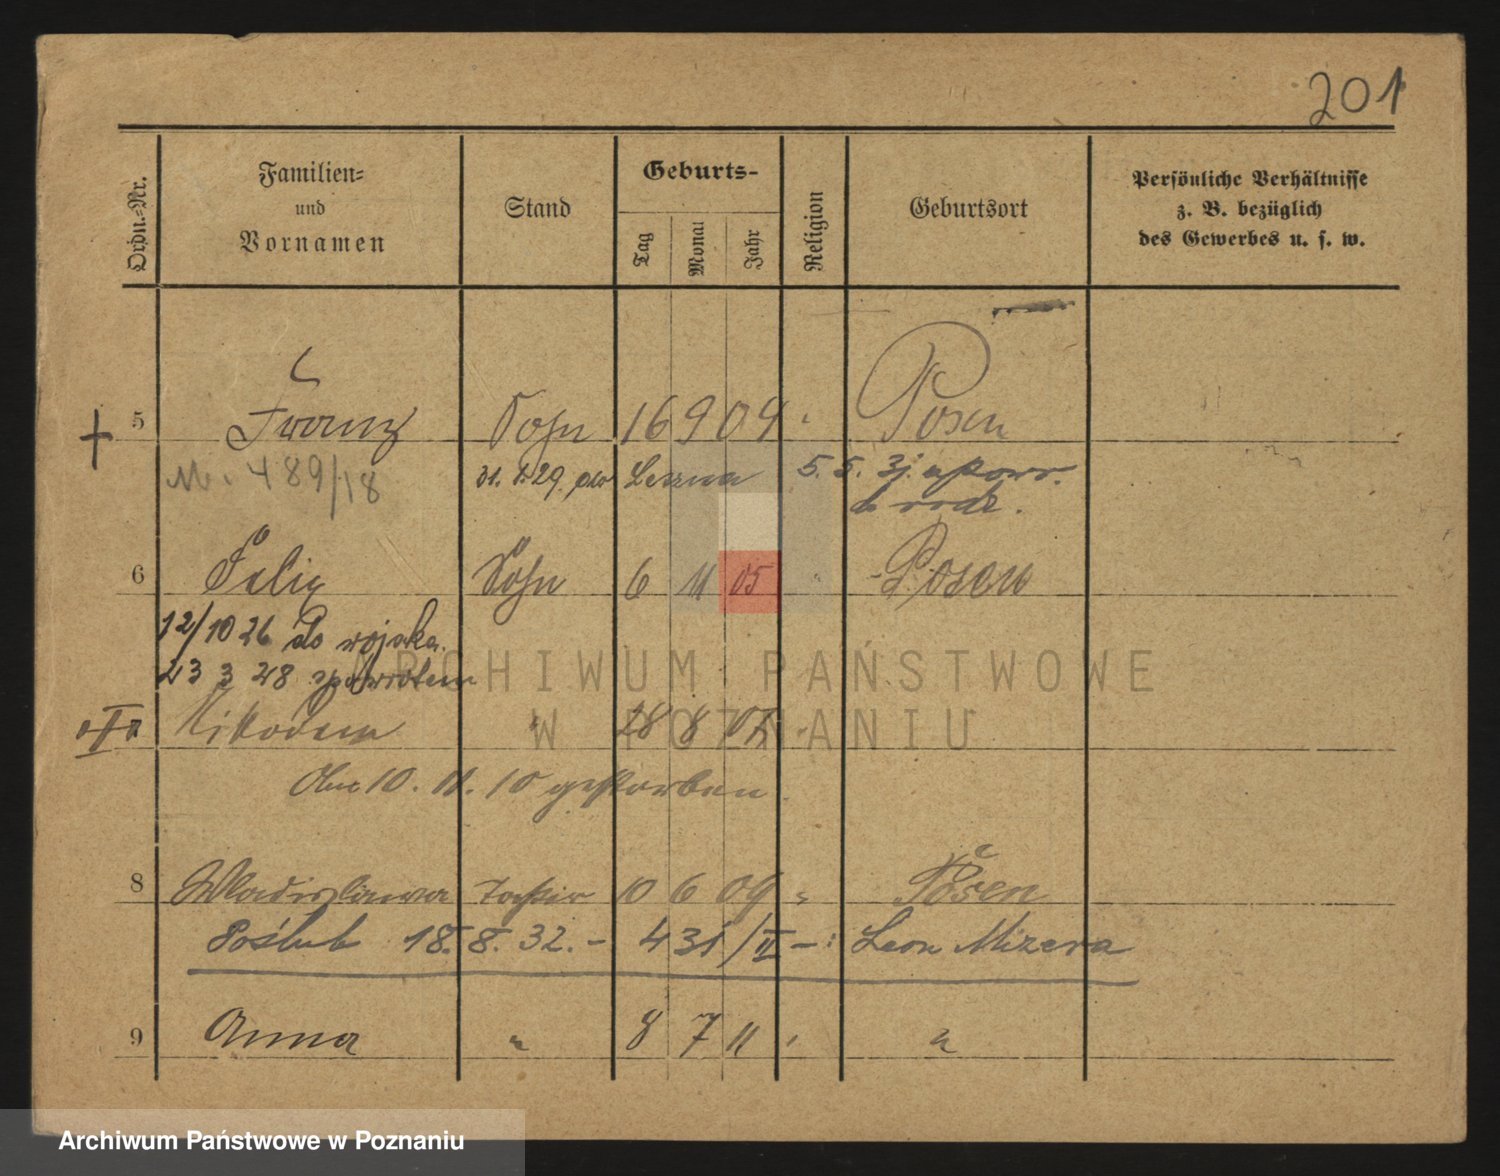 201
Ordn.-Nr.
Familien-
und
Vornamen
Stand
Geburts-
Tag
Monat
Jahr
Religion
Geburtsort
Persönliche Verhältnisse
z. B. bezüglich
des Gewerbes u. s. w.
5 Franz Sohn 16 9 04 Posen
489/18 31. 29. 5. 5. 3
6 Felix Sohn 6 11 05 Posen
12/10 26 do wojska.
23 3 28 spowrotem
Nikodem " 28 8 07
10. 11. 10 gestorben.
8 Wladislawa Tochter 10 6 09 " Posen
Poślub 18. 8. 32. - 431/II -: Leon Mizera
9 Anna " 8 7 11 "
ARCHIWUM PAŃSTWOWE
W POZNANIU
Archiwum Państwowe w Poznaniu